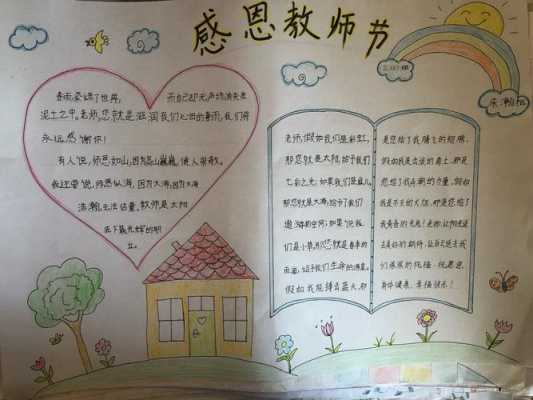 感恩教师节
春雨,染绿了世界,而自己却无声地消失在
泥土之中。老师,您就是滋润我们心田的春雨,我们将
永远感谢你!
有人说,师恩如山,因为高山巍巍,使人崇敬。
我还要说,师恩似海,因为大海
浩瀚,无法估量。教师是太阳
底下最光辉的职
业。
老师,假如我们是彩虹,
那您就是太阳,给予我们
七彩之光;如果我们是鱼儿,
那您就是大海,给予了我们
遨游的空间;如果说我
们是小草,那您就是春季的
雨滴,给予我们生命的源。
假如我能搏击蓝天,那
是您给了我腾飞的翅膀,
假如我是击浪的勇士,那是
您给了我弄潮的力量,假如
我是不灭的火炬,那是您给了
我青春的光亮!老师,让阳光送
去美好的期待,让
们深深的祝福,祝愿您
身体健康、幸福快乐!